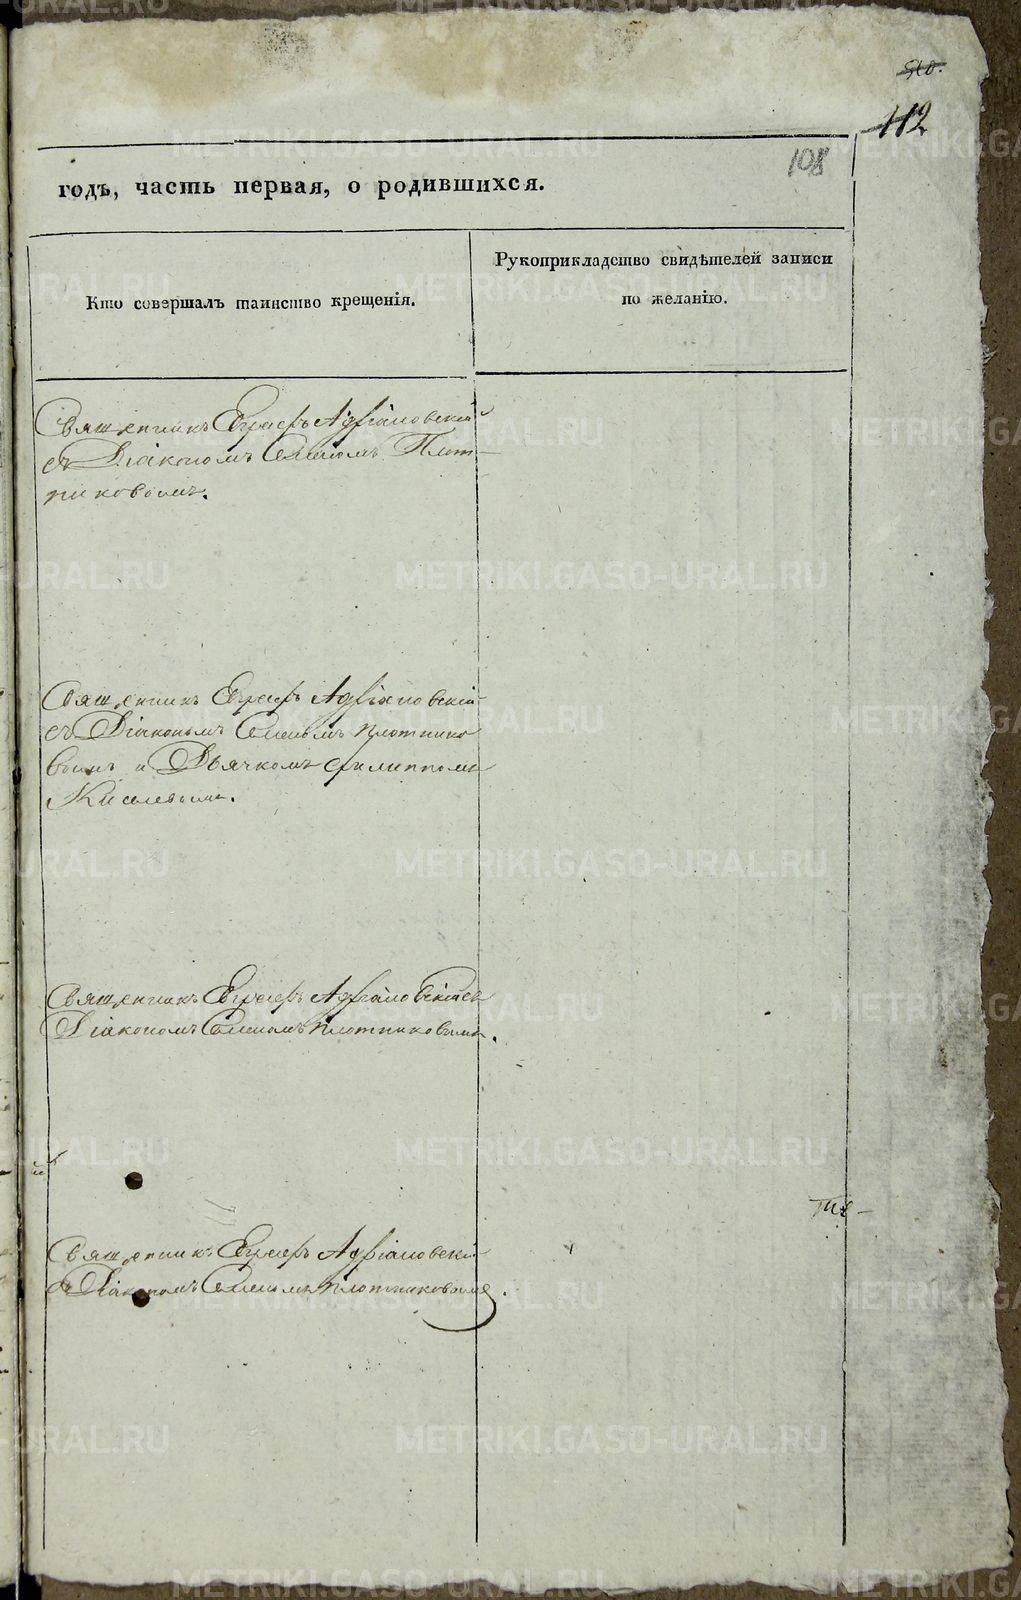 112
108
годъ, часть первая, о родившихся.
Кто совершалъ таинство крещенія.
Рукоприкладство свидѣтелей записи
по желанію.
Священникъ Адріановскій
съ Діакономъ Симеономъ Плот-
никовымъ.
Священникъ Адріановскій
съ Діакономъ Симеономъ Плотнико
вымъ и Дьячкомъ Филиппомъ
Киселевымъ.
Священникъ Адріановскій съ
Діакономъ Симеономъ Плотниковымъ.
Священникъ Адріановскій
съ Діакономъ Симеономъ Плотниковымъ.
METRIKI.GASO-URAL.RU